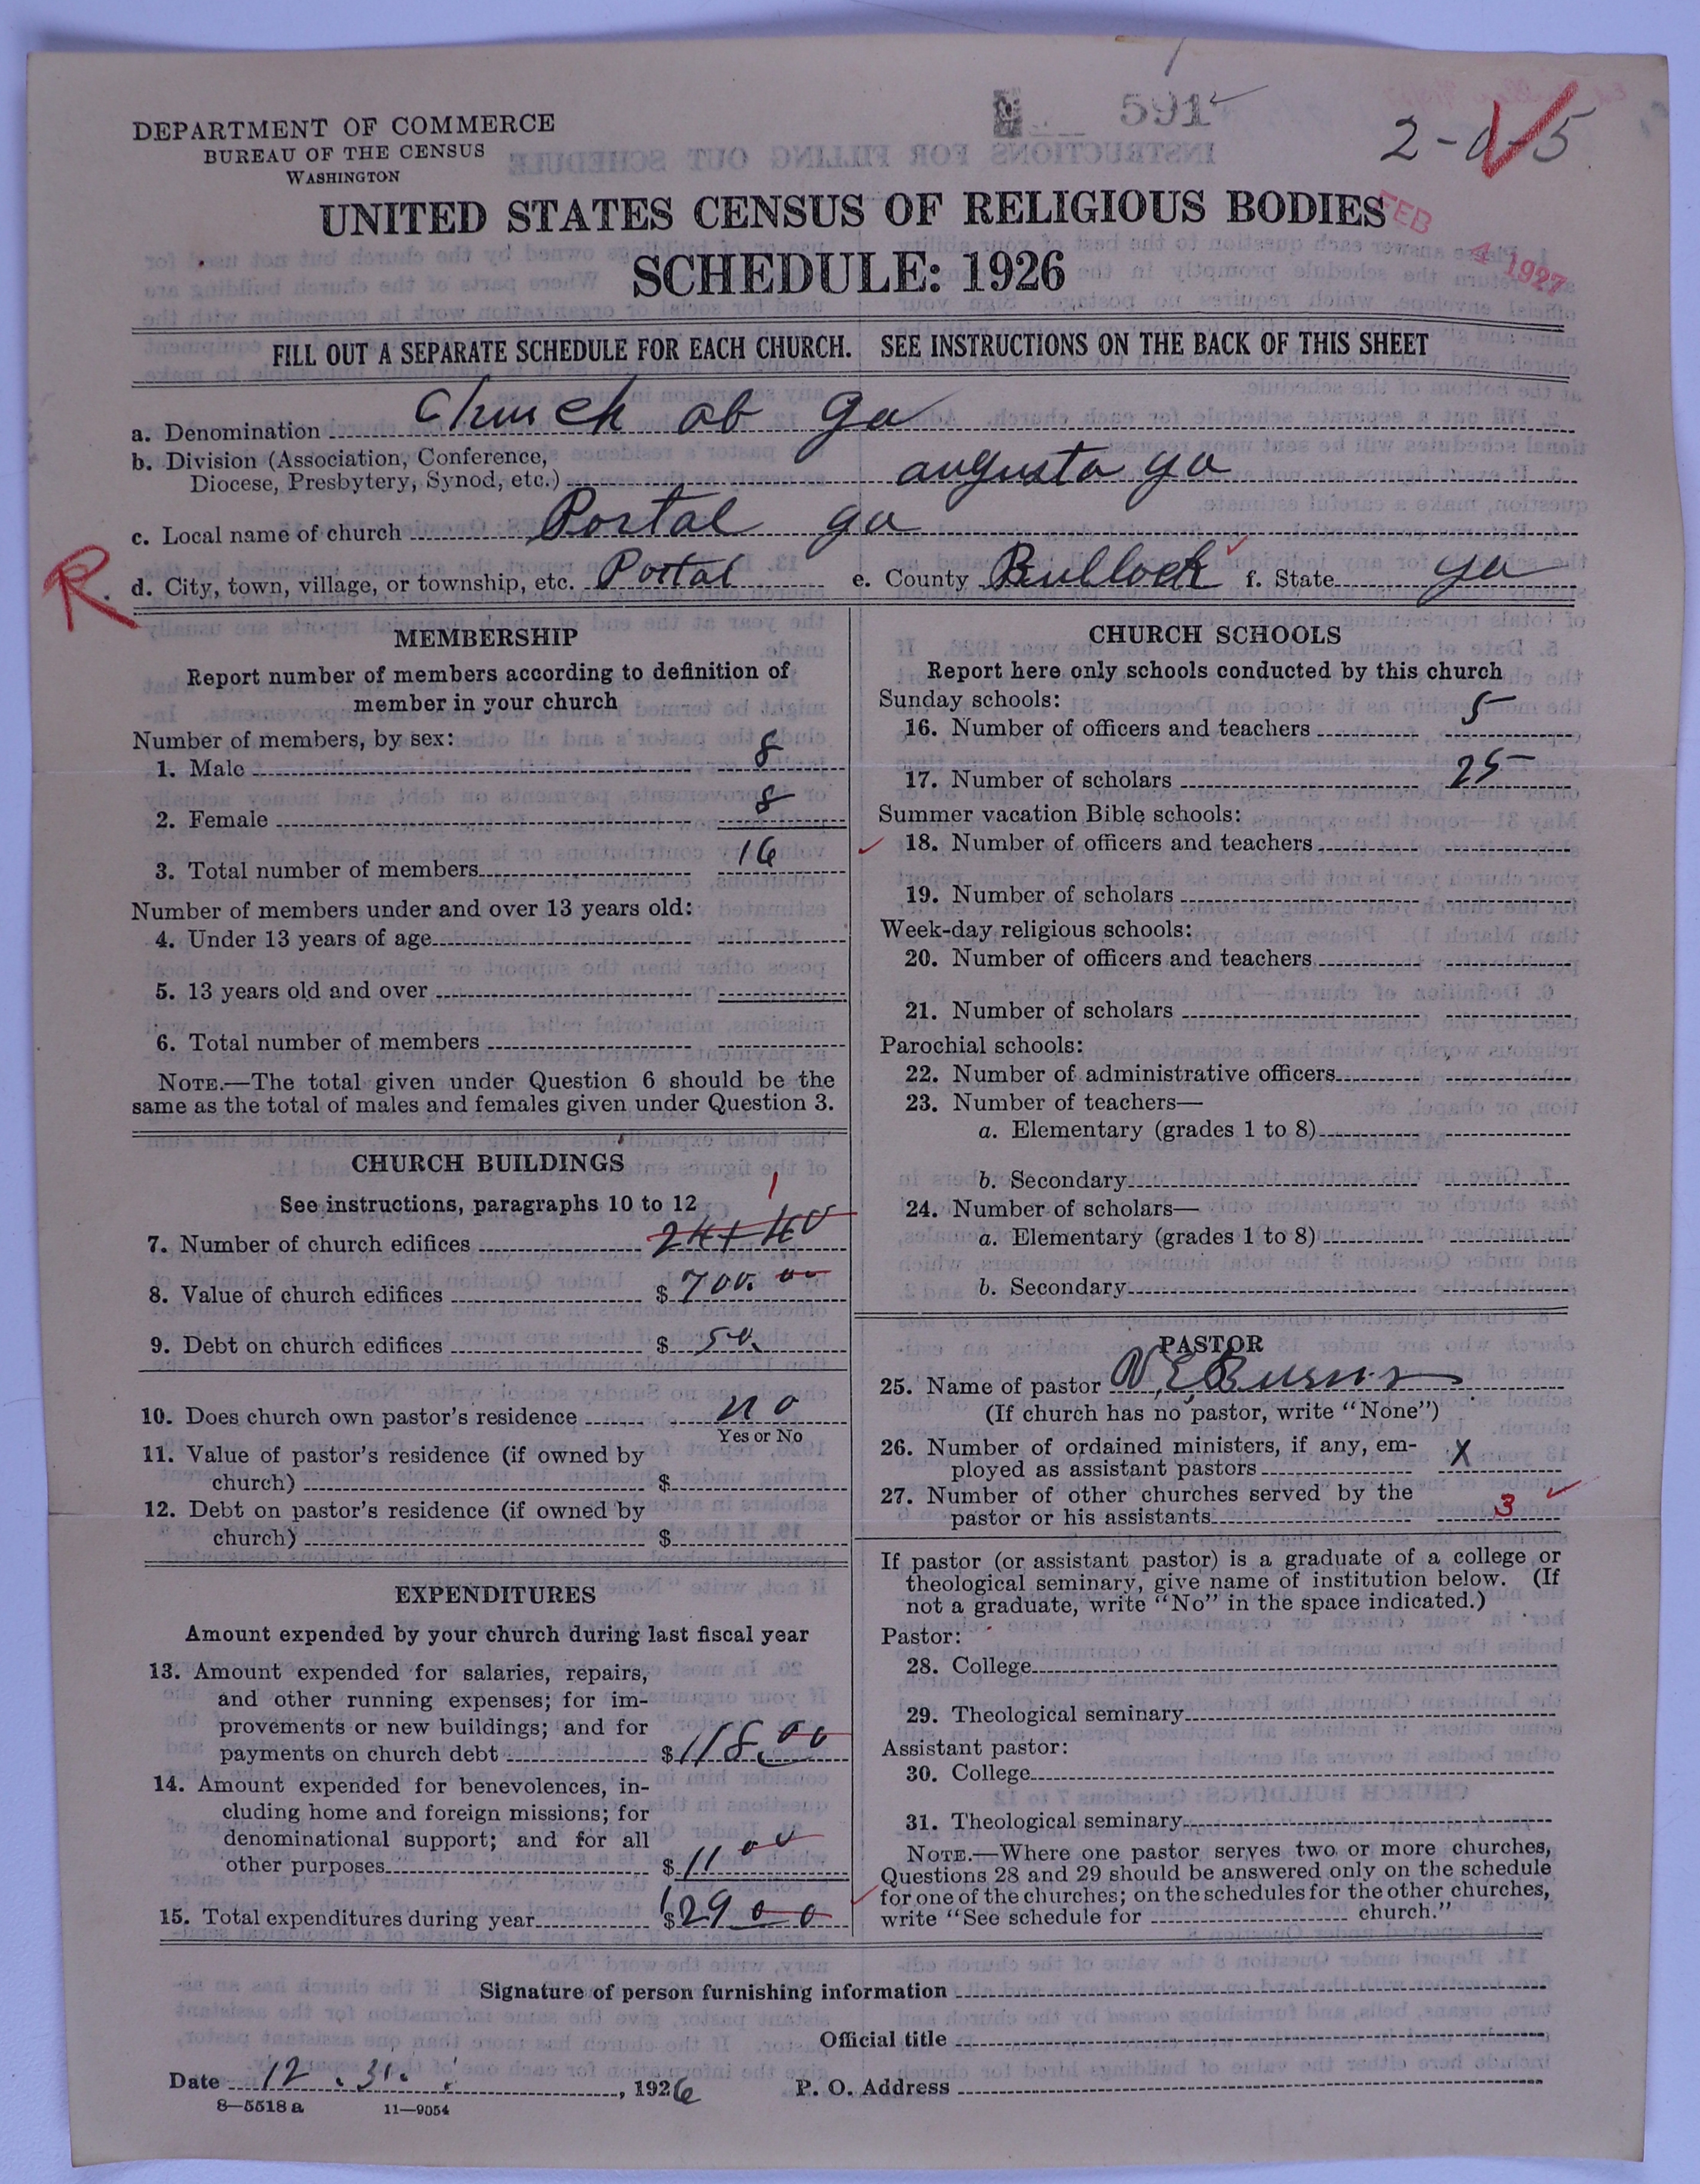 591
2-0-5
DEPARTMENT OF COMMERCE
BUREAU OF THE CENSUS
WASHINGTON
UNITED STATES CENSUS OF RELIGIOUS BODIES
FEB 4 1927
SCHEDULE: 1926
FILL OUT A SEPARATE SCHEDULE FOR EACH CHURCH. SEE INSTRUCTIONS ON THE BACK OF THIS SHEET
a. Denomination Church ob ga
b. Division (Association, Conference,
Diocese, Presbytery, Synod, etc.) augusta ga
c. Local name of church Portal ga
R d. City, town, village, or township, etc. Portal e. County Bullock f. State ga
MEMBERSHIP
Report number of members according to definition of
member in your church
Number of members, by sex:
1. Male 8
2. Female 8
3. Total number of members 16
Number of members under and over 13 years old:
4. Under 13 years of age
5. 13 years old and over
6. Total number of members
NOTE.—The total given under Question 6 should be the
same as the total of males and females given under Question 3.
CHURCH BUILDINGS
See instructions, paragraphs 10 to 12
1
7. Number of church edifices 24+40
8. Value of church edifices $ 700.00
9. Debt on church edifices $ 50.
10. Does church own pastor's residence no
Yes or No
11. Value of pastor's residence (if owned by
church) $
12. Debt on pastor's residence (if owned by
church) $
EXPENDITURES
Amount expended by your church during last fiscal year
13. Amount expended for salaries, repairs,
and other running expenses; for im-
provements or new buildings; and for
payments on church debt $ 118.00
14. Amount expended for benevolences, in-
cluding home and foreign missions; for
denominational support; and for all
other purposes $ 11 00
15. Total expenditures during year $ 129 00
CHURCH SCHOOLS
Report here only schools conducted by this church
Sunday schools:
16. Number of officers and teachers 5
17. Number of scholars 25
Summer vacation Bible schools:
18. Number of officers and teachers
19. Number of scholars
Week-day religious schools:
20. Number of officers and teachers
21. Number of scholars
Parochial schools:
22. Number of administrative officers
23. Number of teachers—
a. Elementary (grades 1 to 8)
b. Secondary
24. Number of scholars—
a. Elementary (grades 1 to 8)
b. Secondary
PASTOR
25. Name of pastor
(If church has no pastor, write "None")
26. Number of ordained ministers, if any, em-
ployed as assistant pastors X
27. Number of other churches served by the
pastor or his assistants 3
If pastor (or assistant pastor) is a graduate of a college or
theological seminary, give name of institution below. (If
not a graduate, write "No" in the space indicated.)
Pastor:
28. College
29. Theological seminary
Assistant pastor:
30. College
31. Theological seminary
NOTE.—Where one pastor serves two or more churches,
Questions 28 and 29 should be answered only on the schedule
for one of the churches; on the schedules for the other churches,
write "See schedule for church."
Signature of person furnishing information
Official title
Date 12.31. , 1926 P. O. Address
8—5518 a 11—9054